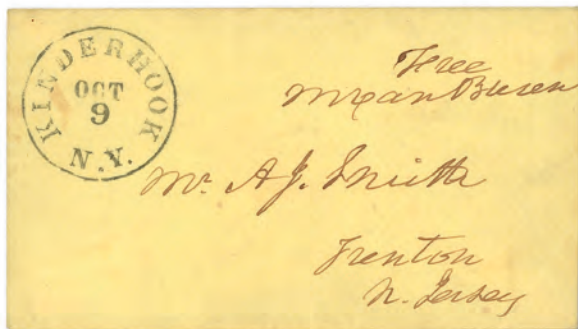 KINDERHOOK
OCT
9
N.Y.
Free
MVanBuren
Mr. A.J. Smith
Trenton
N. Jersey